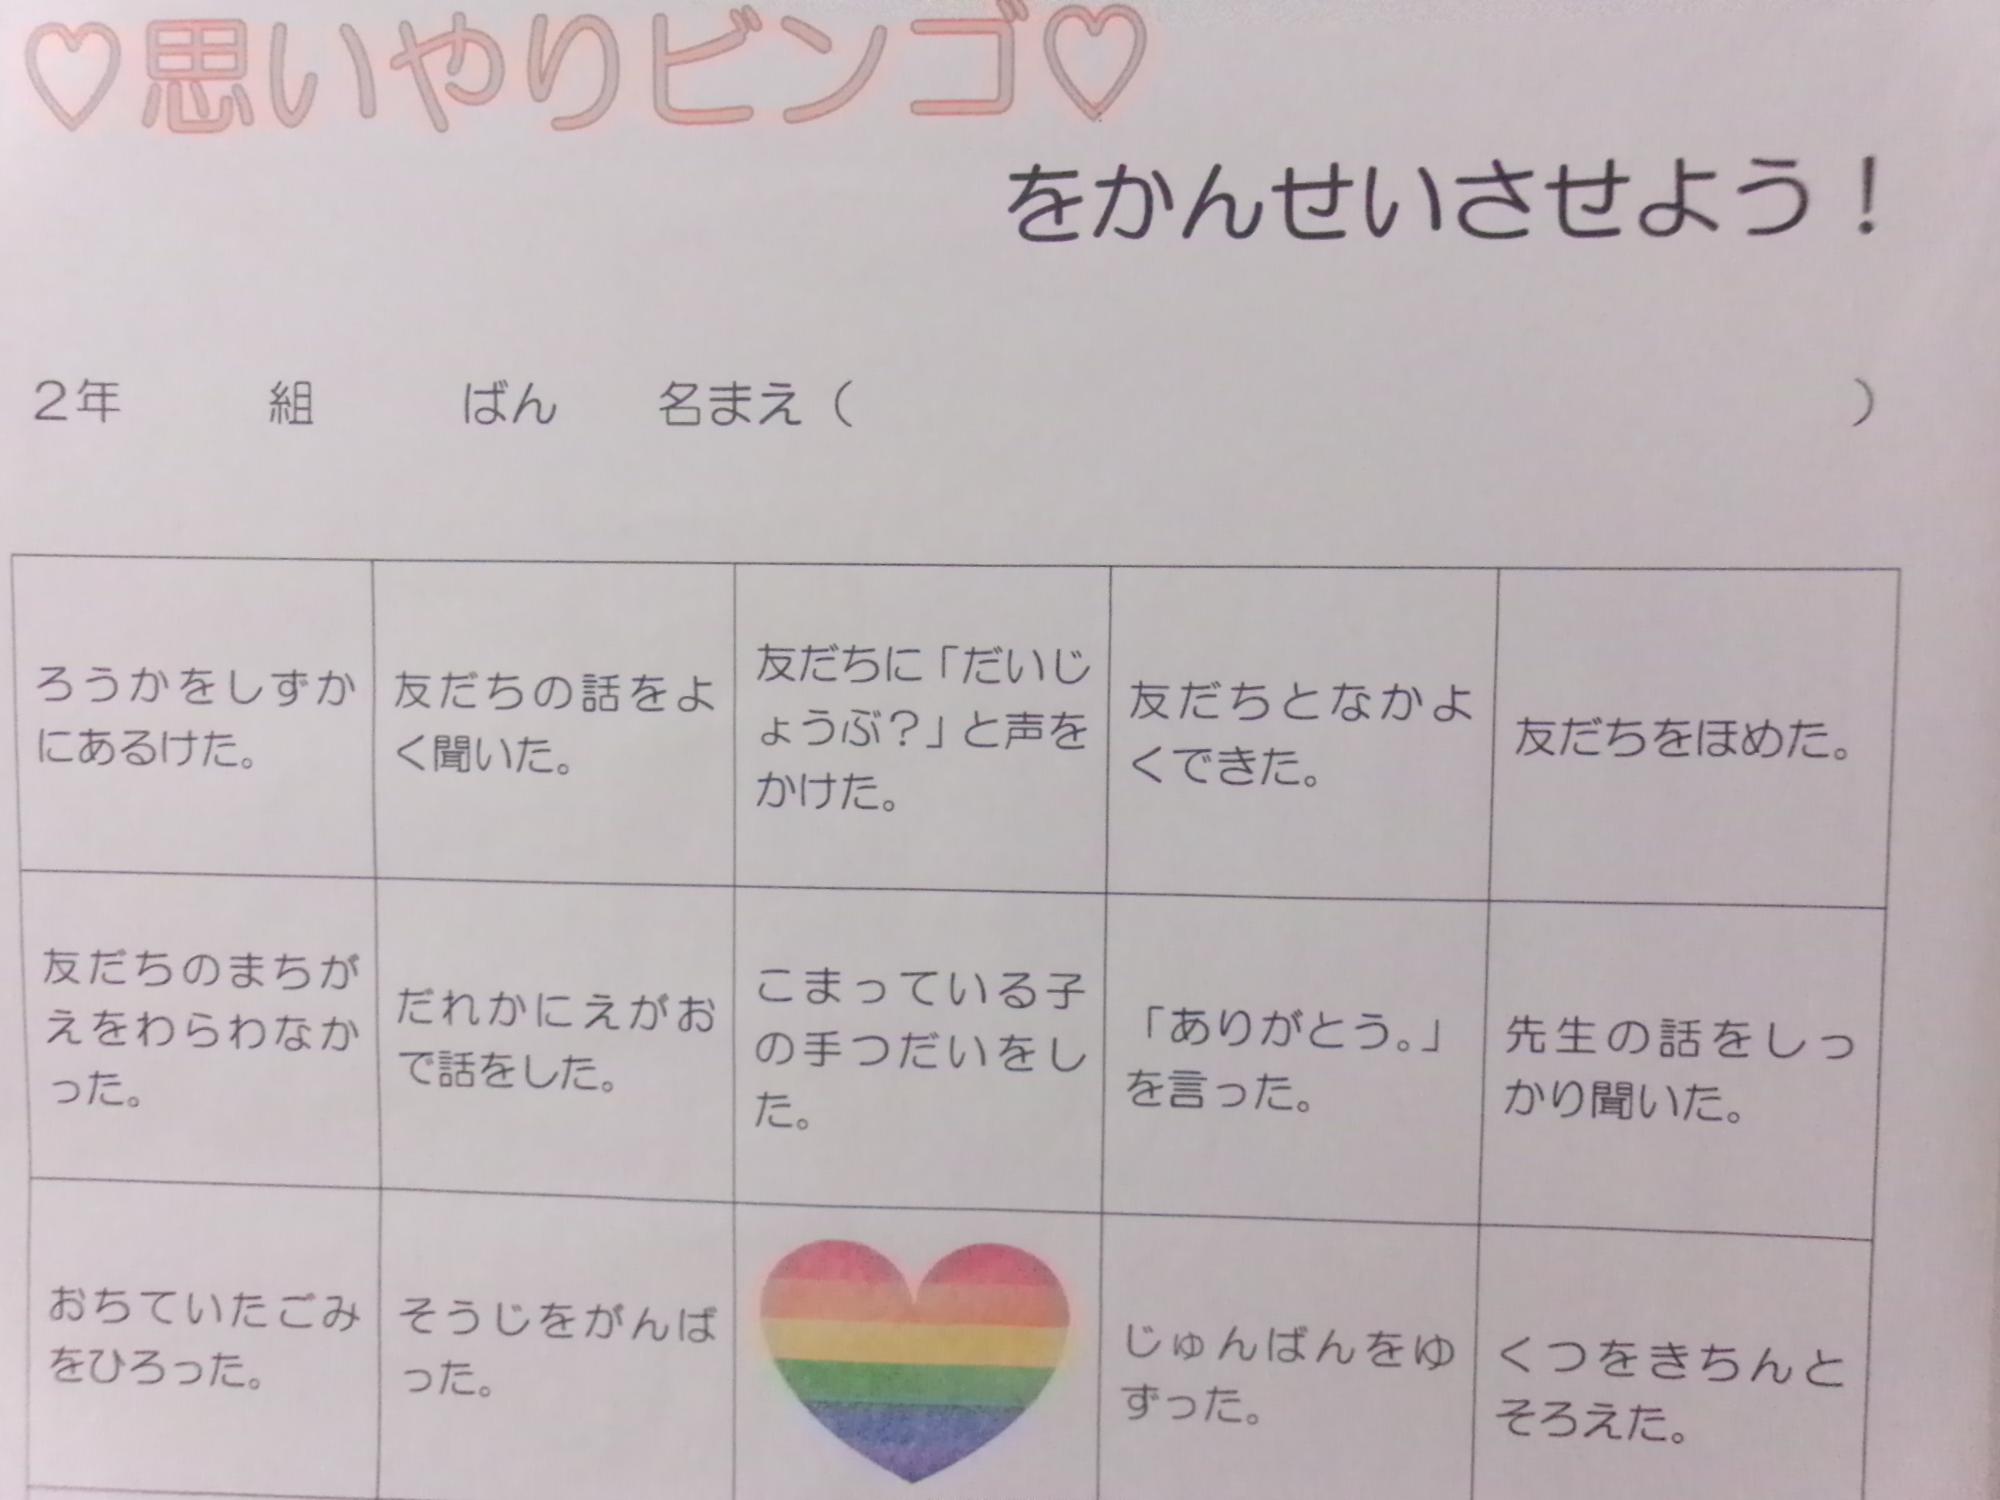 ♡思いやりビンゴ♡
をかんせいさせよう！
２年　組　ばん　名まえ（　）
ろうかをしずか
にあるけた。
友だちの話をよ
く聞いた。
友だちに「だいじ
ょうぶ？」と声を
かけた。
友だちとなかよ
くできた。
友だちをほめた。
友だちのまちが
えをわらわなか
った。
だれかにえがお
で話をした。
こまっている子
の手つだいをし
た。
「ありがとう。」
を言った。
先生の話をしっ
かり聞いた。
おちていたごみ
をひろった。
そうじをがんば
った。
じゅんばんをゆ
ずった。
くつをきちんと
そろえた。